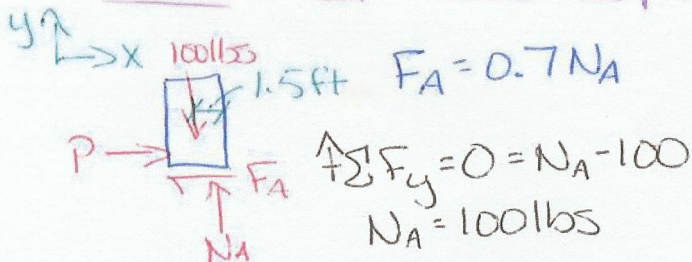 y
x
100lbs
1.5ft
F_A = 0.7 N_A
P
F_A
+↑ΣF_y = 0 = N_A - 100
N_A = 100lbs
N_A